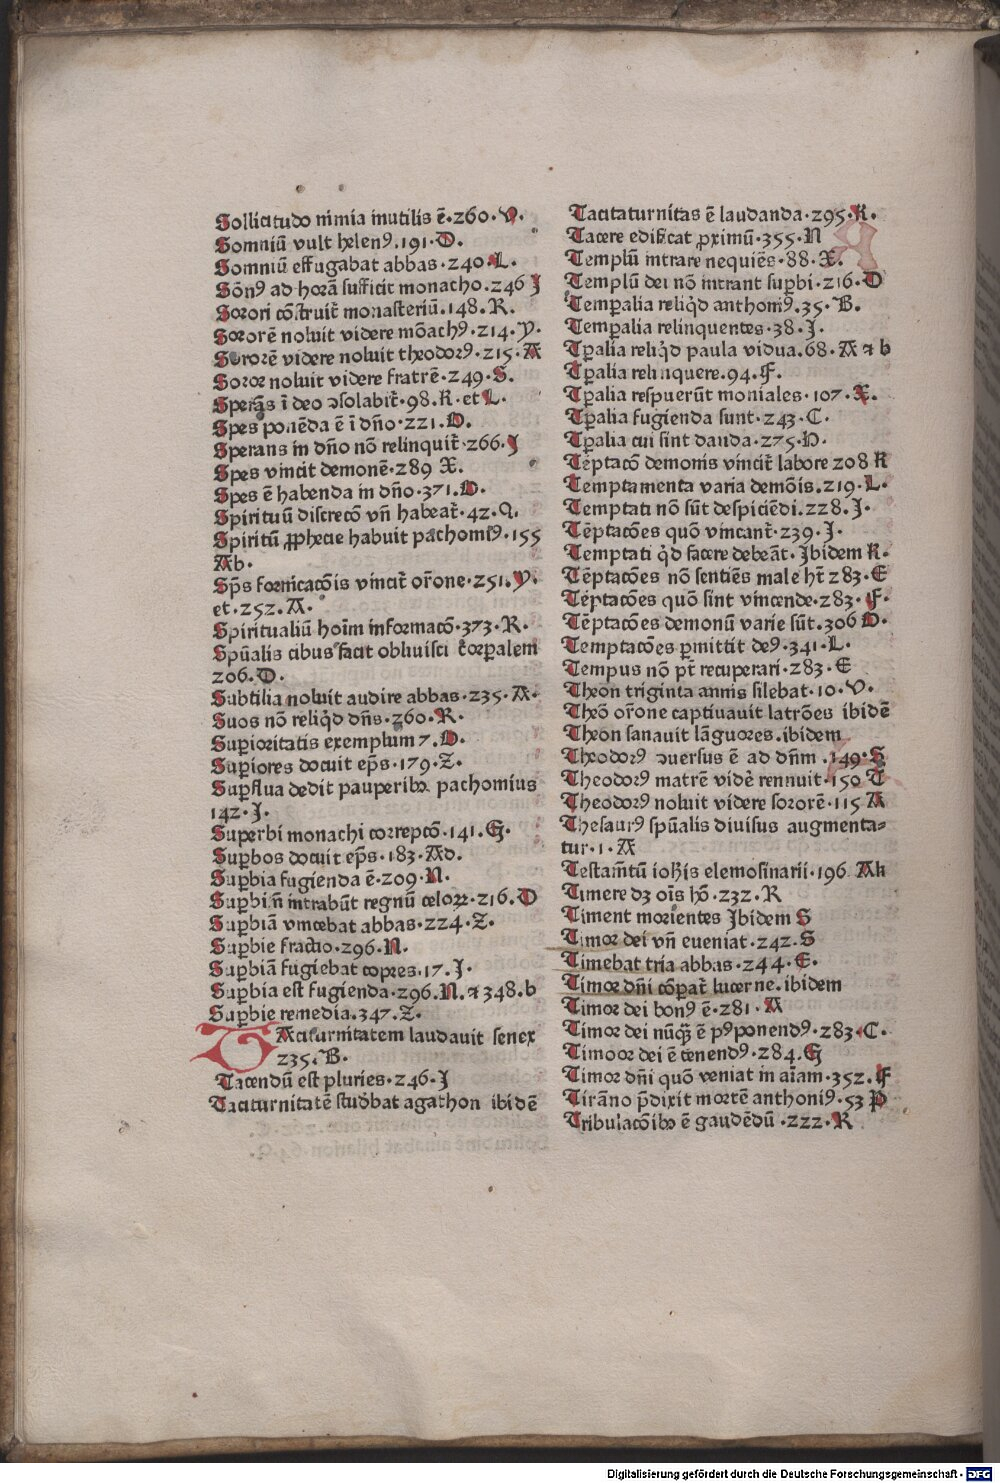 Sollicitudo nimia inutilis ē·260·V·
Somniū vult helenꝰ.191·O.
Somniū effugabat abbas·240·L·
Sōnꝰ ad horā sufficit monacho.246 J
Sorori cōstruit᷑ monasteriū.148.R.
Sororē noluit videre mōachꝰ·214·Y·
Sororē videre noluit theodorꝰ·215·A
Soror noluit videre fratrē·249·S.
Sperās ī deo ↄsolabit᷑·98.K·et L·
Spes ponēda ē ī dño·221.D.
Sperans in dño nō relinquit᷑·266.J
Spes vincit demonē·289 X.
Spes ē habenda in dño·371.D.
Spirituū discrecō vñ habeat᷑·42·Q.
Spiritū ꝓphecie habuit pachomiꝰ·155
Ab·
Sp̄s fornicacōis vincit᷑ or̄one·251.Y.
et·252.A.
Spiritualiū hoīm informacō·373·R.
Spūalis cibus facit obliuisci corꝑalem
206.D.
Subtilia noluit audire abbas·235.A.
Suos nō reliq̇d dñs·260·R·
Suꝑioritatis exemplum 7.D.
Suꝑiores docuit ep̄s·179·Z·
Suꝑflua dedit pauperibꝫ pachomius
142·J·
Superbi monachi correpcō·141.G·
Suꝑbos docuit ep̄s·183·Ad.
Suꝑbia fugienda ē·209·N.
Suꝑbi n̄ intrabūt regnū celoꝝ·216.D
Suꝑbiā vincebat abbas·224·Z·
Suꝑbie fractio·296·N.
Suꝑbiā fugiebat copres·17.J·
Suꝑbia est fugienda·296.N.⁊ 348.b
Suꝑbie remedia.347.Z.
TAciturnitatem laudauit senex
235.B.
Tacendū est pluries·246·J
Taciturnitatē studꝫbat agathon ibidē
Tacitaturnitas ē laudanda·295·K.
Tacere edificat ꝓximū·355·N
Templū intrare nequiēs·88·X.
Templū dei nō intrant suꝑbi·216·D
Temꝑalia reliq̇d anthoniꝰ.35·B.
Temꝑalia relinquentes·38.J.
Tꝑalia reliq̇d paula vidua.68·A ⁊ b
Tꝑalia relinquere.94.F.
Tꝑalia respuerūt moniales·107·X.
Tꝑalia fugienda sunt·243·C.
Tꝑalia cui sint danda·275·D.
Tēptacō demonis vincit᷑ labore 208 K
Temptamenta varia demōis.219·L·
Temptati nō sūt despiciēdi.228.J·
Tēptacōes quō vincant᷑·239·J.
Temptati q̇d facere debeāt·Jbidem K·
Tēptacōes nō sentiēs male ht᷑ 283·E
Tēptacōes quō sint vincende·283·F·
Tēptacōes demonū varie sūt.306 D.
Temptacōes ꝑmittit deꝰ·341·L·
Tempus nō pt᷑ recuperari·283·E
Theon triginta annis silebat·10·V·
Theō or̄one captiuauit latrōes ibidē
Theon sanauit lāguores.ibidem
Theodorꝰ ↄuersus ē ad dñm·149·S
Theodorꝰ matrē videre rennuit·150 T
Theodorꝰ noluit videre sororē·115 A
Thesaurꝰ spūalis diuisus augmenta⸗
tur·1·A
Testam̄tū ioh̄is elemosinarii·196 Ah
Timere dꝫ oīs hō·232.R
Timent morientes Jbidem S
Timor dei vñ eueniat·242·S
Timebat tria abbas·244·E·
Timor dñi cōpat᷑ lucerne.ibidem
Timor dei bonꝰ ē·281·A
Timor dei nūq̃ ē pꝰponendꝰ·283·C·
Timoor dei ē tenendꝰ·284.G
Timor dñi quō veniat in aīam·352.F
Tirāno p̄dixit mortē anthoniꝰ.53 P
Tribulacōibꝫ ē gaudēdū·222·R
Digitalisierung gefördert durch die Deutsche Forschungsgemeinschaft - DFG